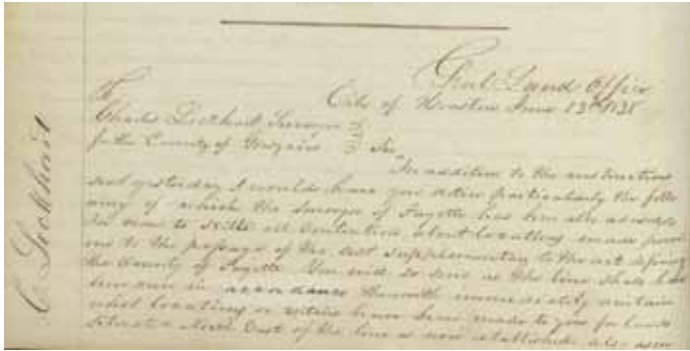 Genl. Land Office
City of Houston June 13th 1838
To
Charles Lockhart Surveyor
for the County of Gonzales
Sir,
In addition to the instructions
sent yesterday I would have you notice particularly the follo
of which the Surveyor of Fayette has been also
to settle all contention about locations made previ
ous to the passage of the act supplementary to the act defining
the County of Fayette You will so soon as the line shall have
been run in accordance therewith immediately ascertain
what locations or entries have been made to you for lands
situate North East of the line as now established also
C. Lockhart